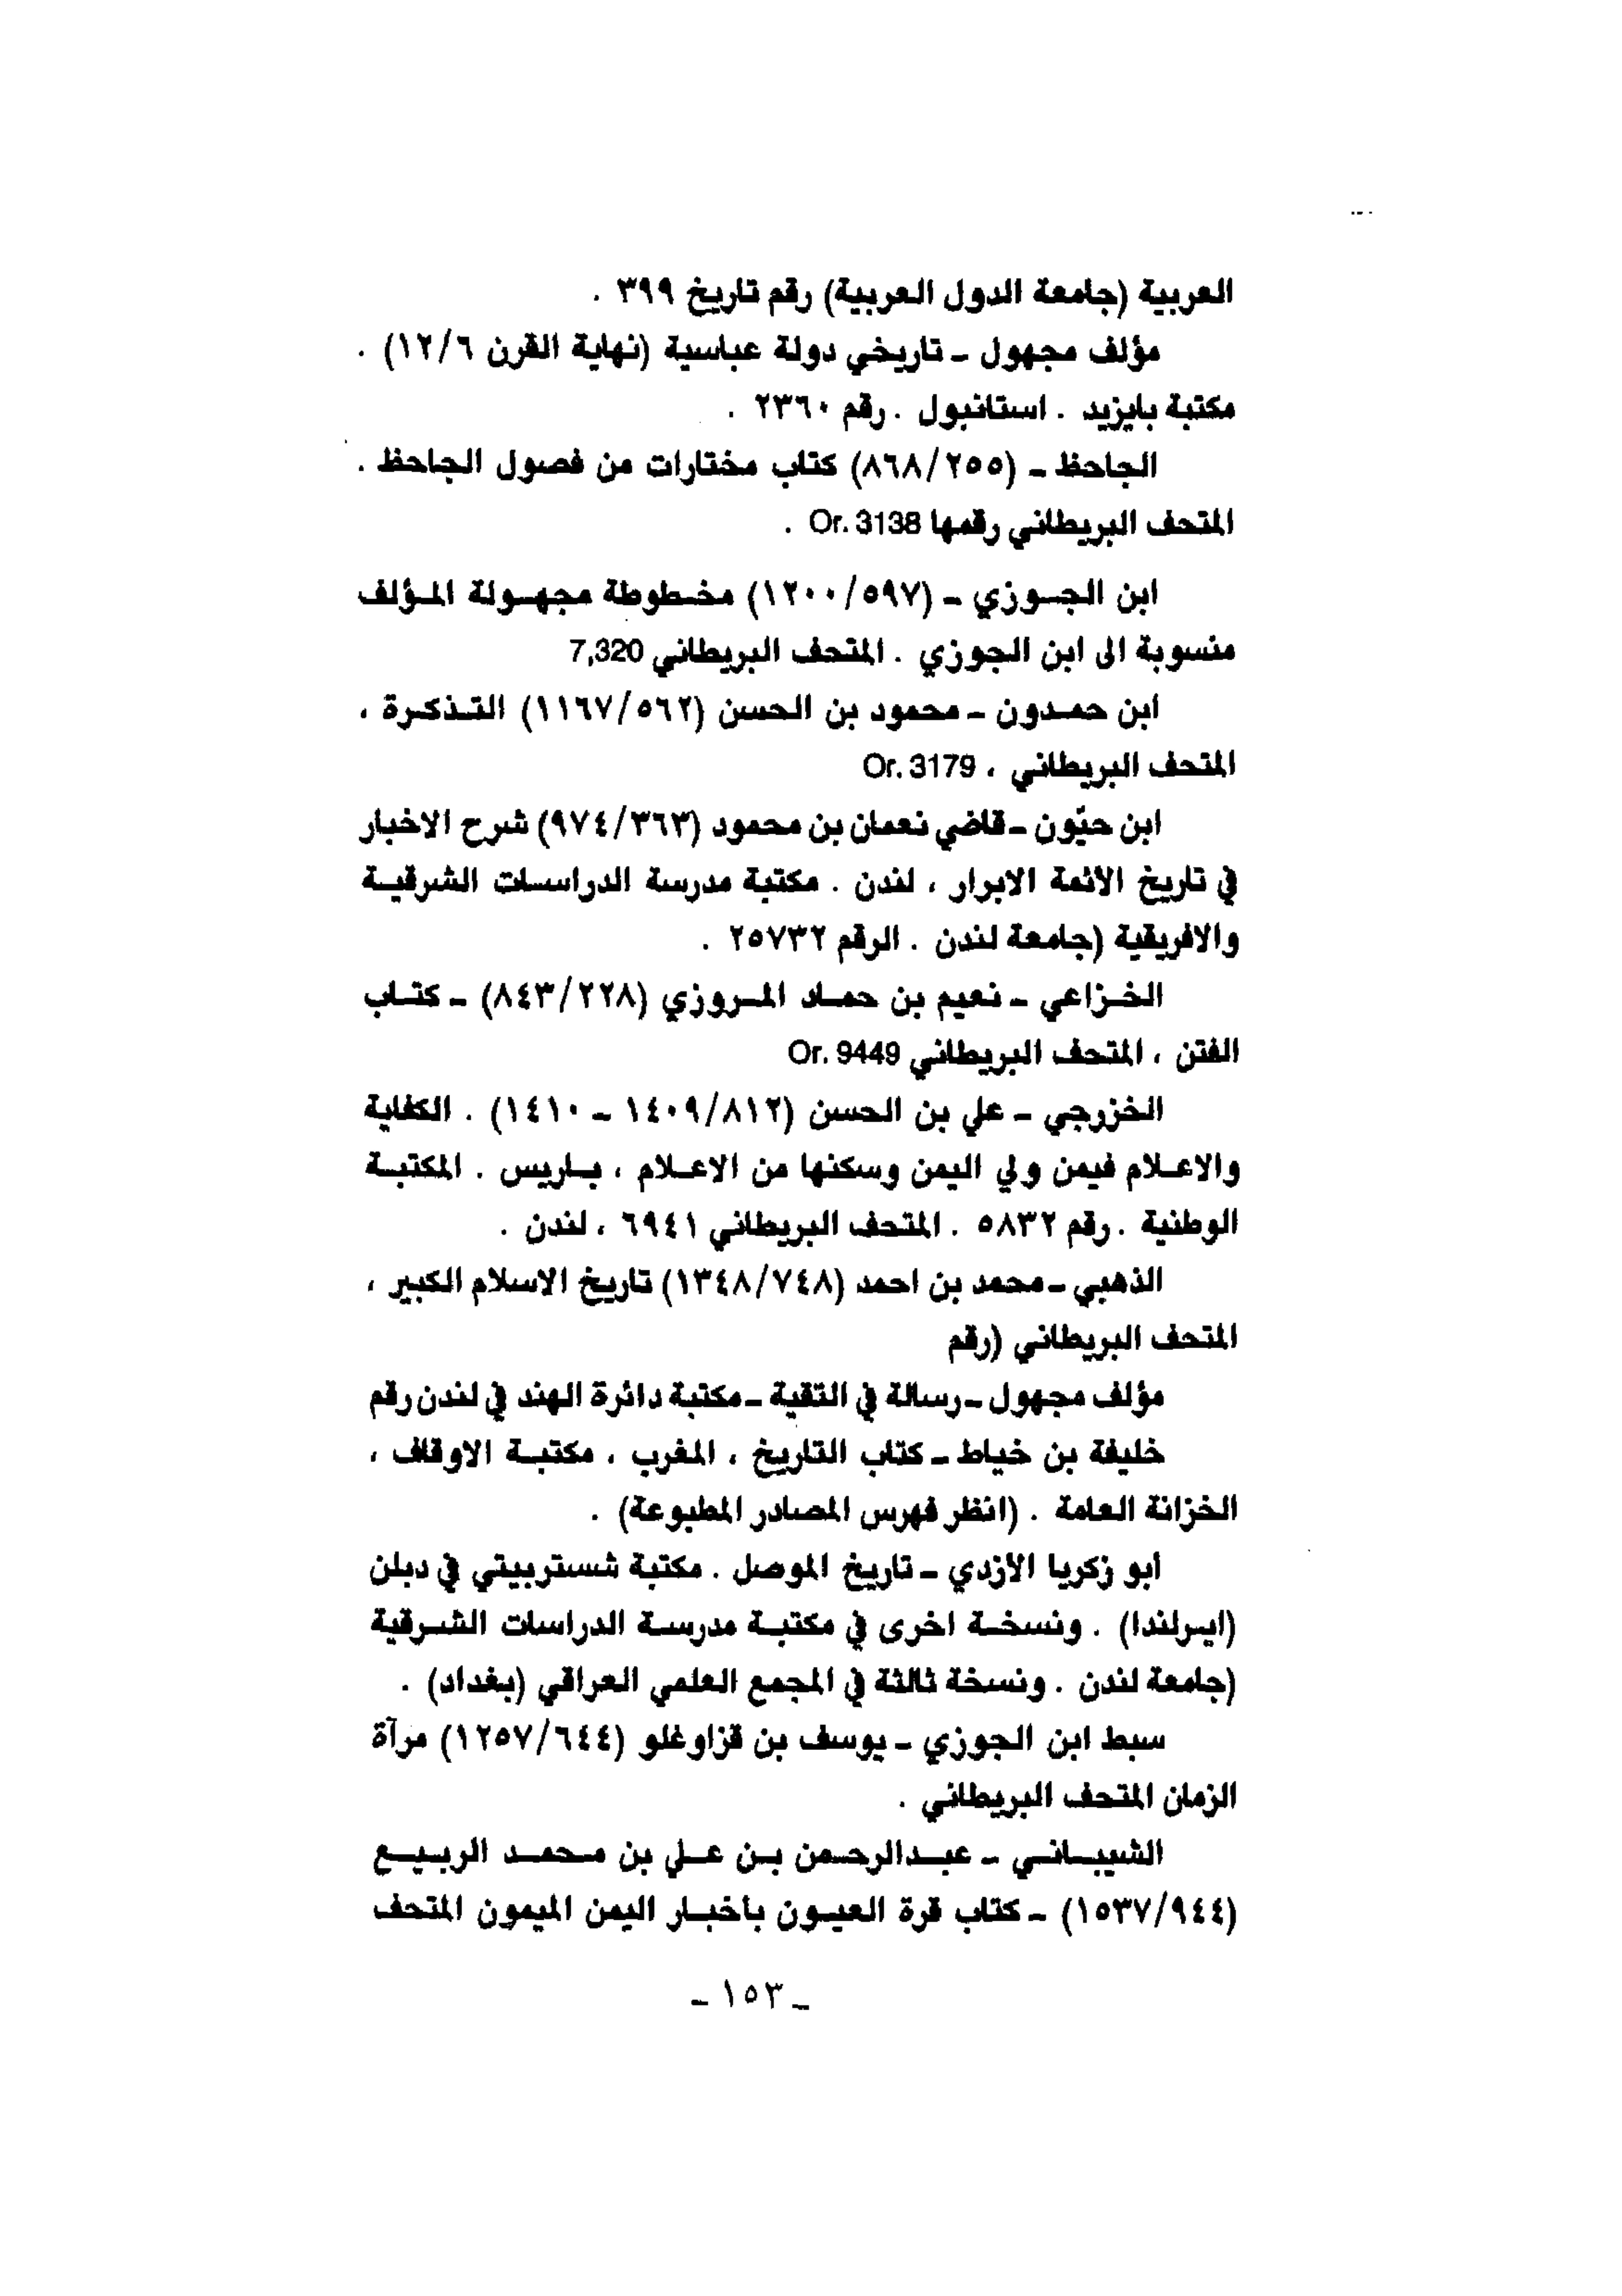 العربية (جامعة الدول العربية) رقم تاريخ ٣٩٩ .
مؤلف مجهول ـ تاريخي دولة عباسية (نهاية القرن ١٢/٦) .
مكتبة بايزيد . استانبول . رقم ٢٣٦٠ .
الجاحظ ـ (٨٦٨/٢٥٥) كتاب مختارات من فصول الجاحظ .
المتحف البريطاني رقمها Or. 3138 .
ابن الجوزي ـ (١٢٠٠/٥٩٧) مخطوطة مجهولة المؤلف
منسوبة الى ابن الجوزي . المتحف البريطاني 7,320
ابن حمدون ـ محمود بن الحسن (١١٦٧/٥٦٢) التذكرة ،
المتحف البريطاني ، Or. 3179
ابن حيّون ـ قاضي نعمان بن محمود (٩٧٤/٣٦٣) شرح الاخبار
في تاريخ الائمة الابرار ، لندن . مكتبة مدرسة الدراسات الشرقية
والافريقية (جامعة لندن . الرقم ٢٥٧٣٢ .
الخزاعي ـ نعيم بن حماد المروزي (٨٤٣/٢٢٨) ـ كتاب
الفتن ، المتحف البريطاني Or. 9449
الخزرجي ـ علي بن الحسن (١٤٠٩/٨١٢ ـ ١٤١٠) . الكفاية
والاعلام فيمن ولي اليمن وسكنها من الاعلام ، باريس . المكتبة
الوطنية . رقم ٥٨٣٢ . المتحف البريطاني ٦٩٤١ ، لندن .
الذهبي ـ محمد بن احمد (١٣٤٨/٧٤٨) تاريخ الاسلام الكبير ،
المتحف البريطاني (رقم
مؤلف مجهول ـ رسالة في التقية ـ مكتبة دائرة الهند في لندن رقم
خليفة بن خياط ـ كتاب التاريخ ، المغرب ، مكتبة الاوقاف ،
الخزانة العامة . (انظر فهرس المصادر المطبوعة) .
أبو زكريا الازدي ـ تاريخ الموصل . مكتبة شستربيتي في دبلن
(ايرلندا) . ونسخة اخرى في مكتبة مدرسة الدراسات الشرقية
(جامعة لندن . ونسخة ثالثة في المجمع العلمي العراقي (بغداد) .
سبط ابن الجوزي ـ يوسف بن قزاوغلو (١٢٥٧/٦٤٤) مرآة
الزمان المتحف البريطاني .
الشيباني ـ عبدالرحمن بن علي بن محمد الربيع
(١٥٣٧/٩٤٤) ـ كتاب قرة العيون باخبار اليمن الميمون المتحف
ـ ١٥٣ ـ